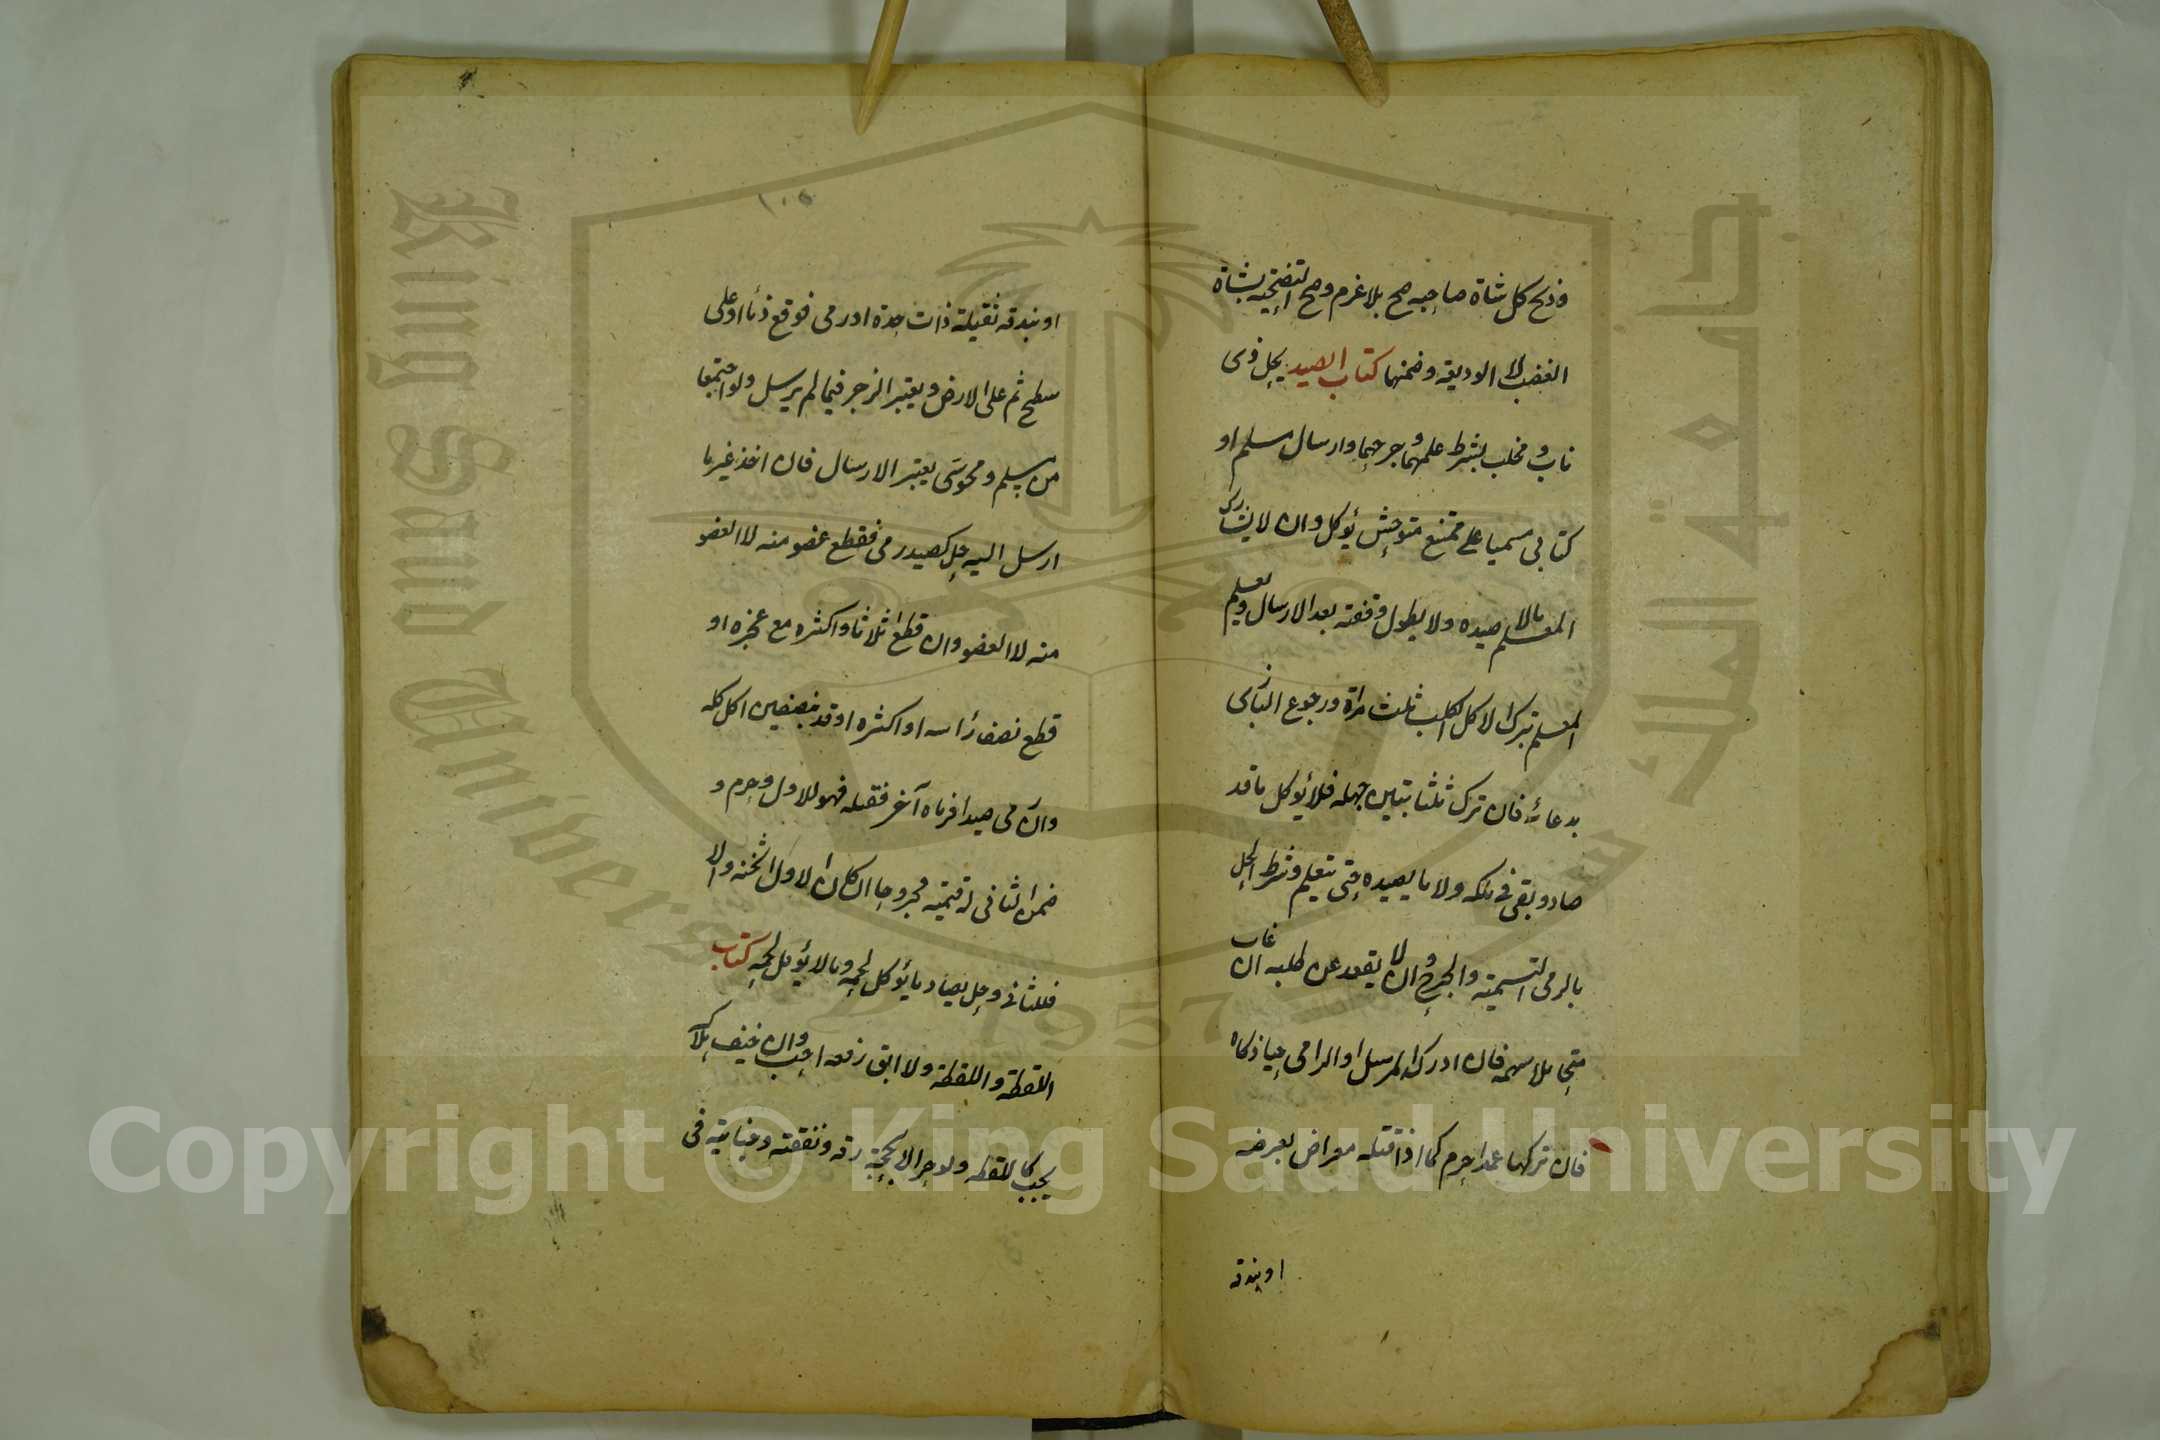 وذبح كل شاة صاحبه صح بلا غرم وصح التضحية بشاة
الغضب لا الوديعة وضمنها كتاب الصيد يحل ذى
ناب و مخلب بشرط علمهما وجرحهما وارسال مسلم او
كتابى مسميا على ممتنع متوحش يؤكل وان لا يشارك
المعلم مالا صيده ولا يطول وقفته بعد الارسال ويعلم
المعلم بترك الاكل الكلب ثلث مرات ورجوع البازى
بدعائه فان ترك ثلثا بتين جهله فلا يؤكل ما قد
صاد وبقى فى ملكه ولا ما يصيده حتى يتعلم وشرط الحل
بالرمى التسمية والجرح وان لا يقعد عن طلبه ان غاب
متحاملا سهمه فان ادرك المرسل او الرامى حيا ذكاه
فان تركها عمدا حرم كما اذا قتله معراض بعرضه
او بندقه
١٠٥
او بندقه ثقيلة ذات حدة او رمى فوقع ذماء او على
سطح ثم على الارض ويعتبر الزجر فيما لم يرسل ولو اجتمعا
من مسلم ومجوسى يعتبر الارسال فان اخذ غير ما
ارسل اليه حل كصيد رمى فقطع عضو منه لا العضو
منه لا العضو وان قطع اثلاثا واكثره مع عجزه او
قطع نصف رأسه او اكثره او قد بنصفين اكل كله
وان رمى صيدا فرماه آخر فقتله فهو للاول وحرم و
ضمن الثانى له قيمته مجروحا ان كان الاول اثخنه والا
فللثانى وحل يصاد ما يؤكل لحمه وما لا يؤكل لحمه كتاب
اللقطة واللقطة ولا ابق رفعه احب وان خيف هلاكه
يجب كاللقطه وهو حر الا بحجة رقه ونفقته وجنايته فى
King Saud Univers
جامعة الملك
1957
Copyright © King Saud University